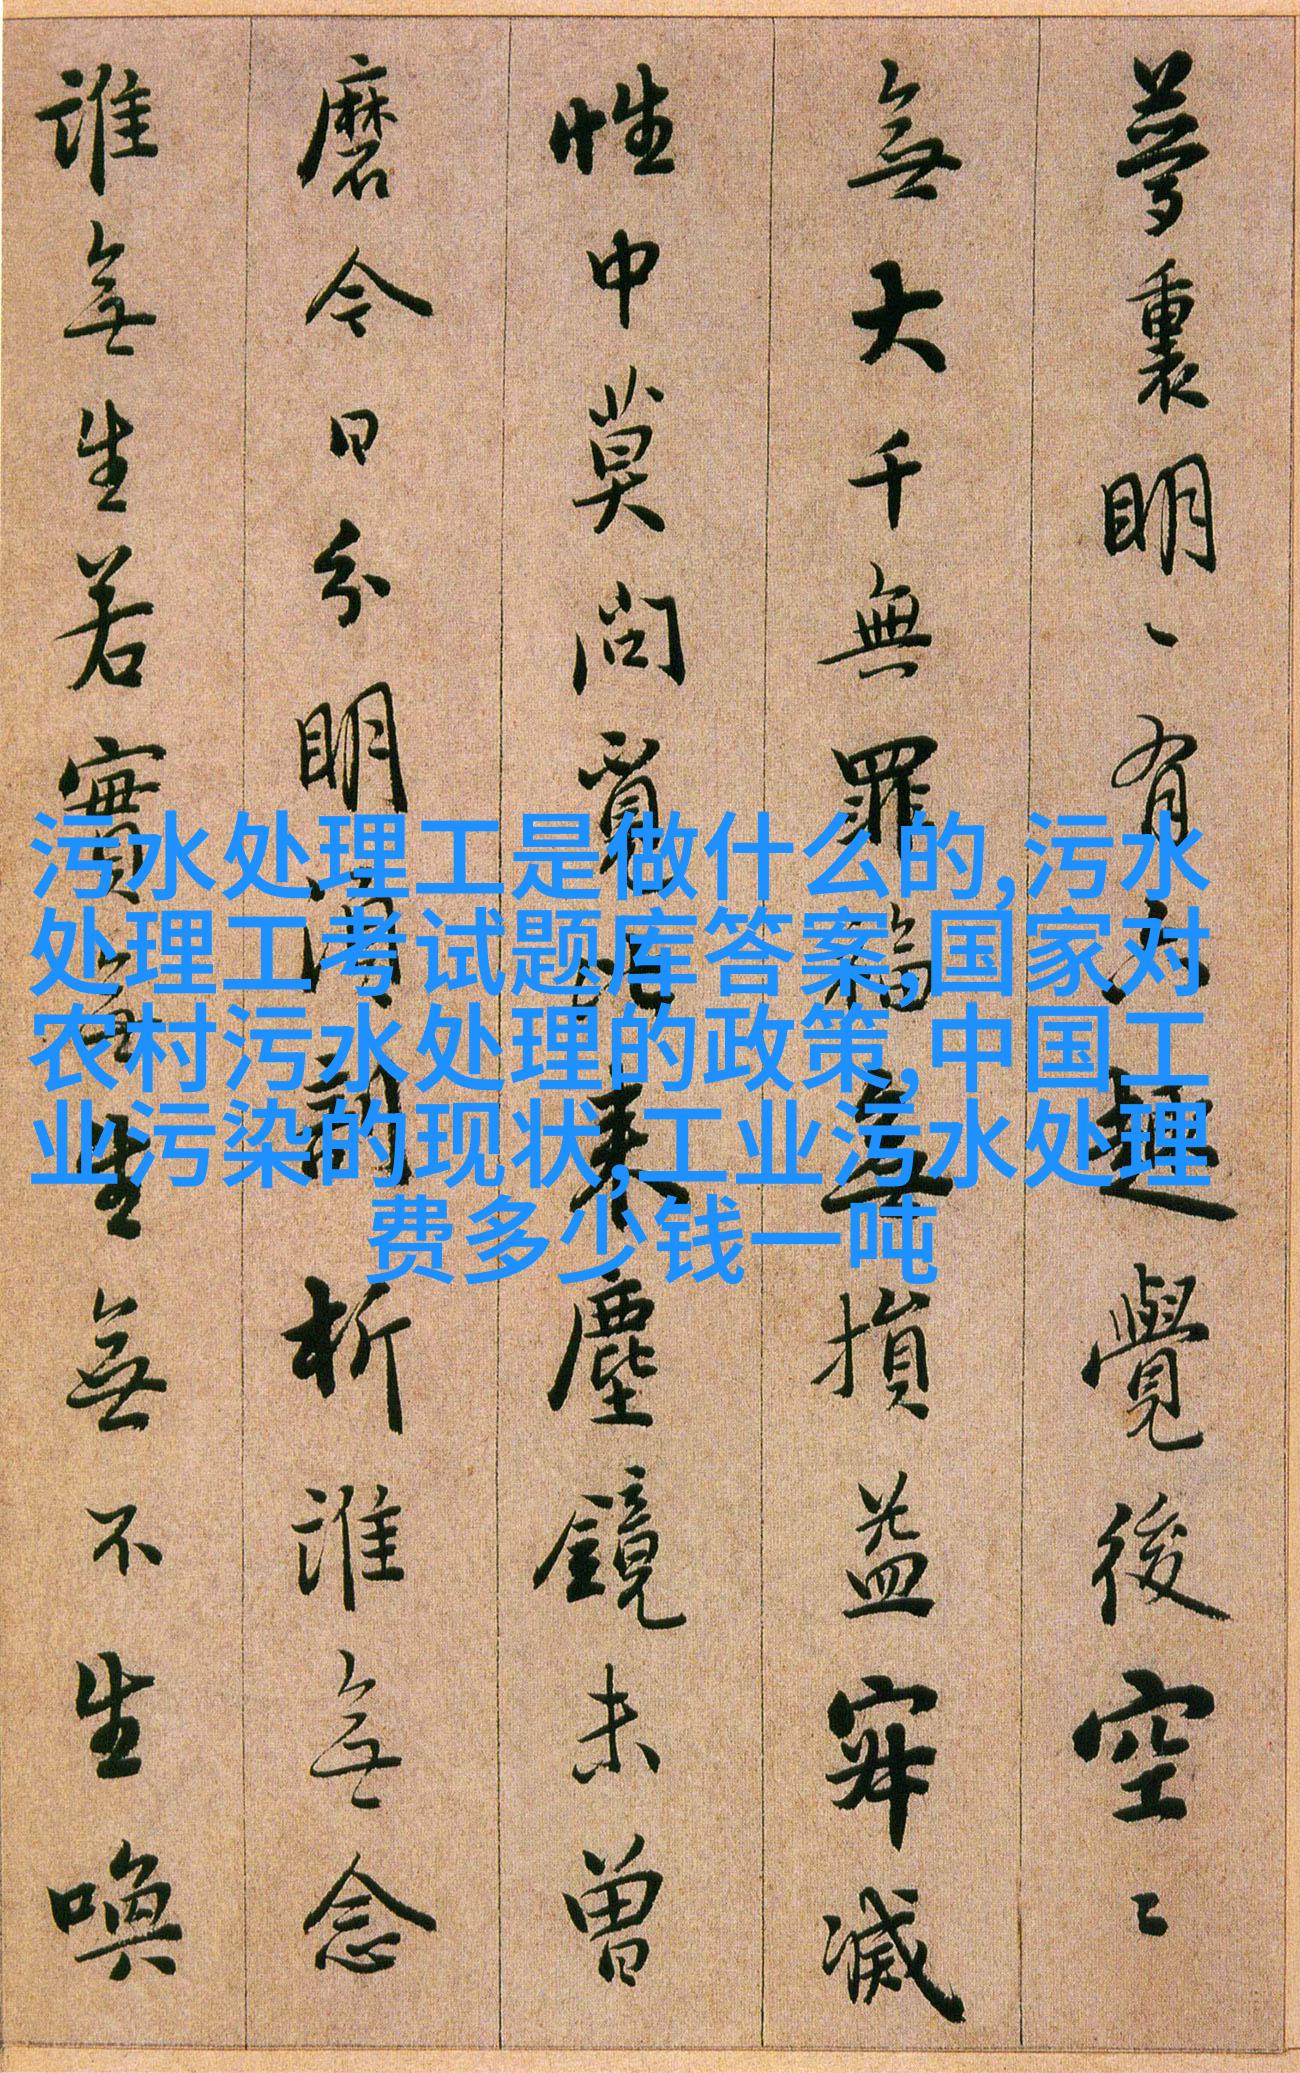 夢裏明〻有六趣覺後空〻
無大千無罪福無損益寂滅
性中莫問覓比來塵鏡未曾
磨今日分明須剖析誰無念
誰無生若實無生無不生喚
污水处理工是做什么的,污水
处理工考试题库答案,国家对
农村污水处理的政策,中国工
业污染的现状,工业污水处理
费多少钱一吨